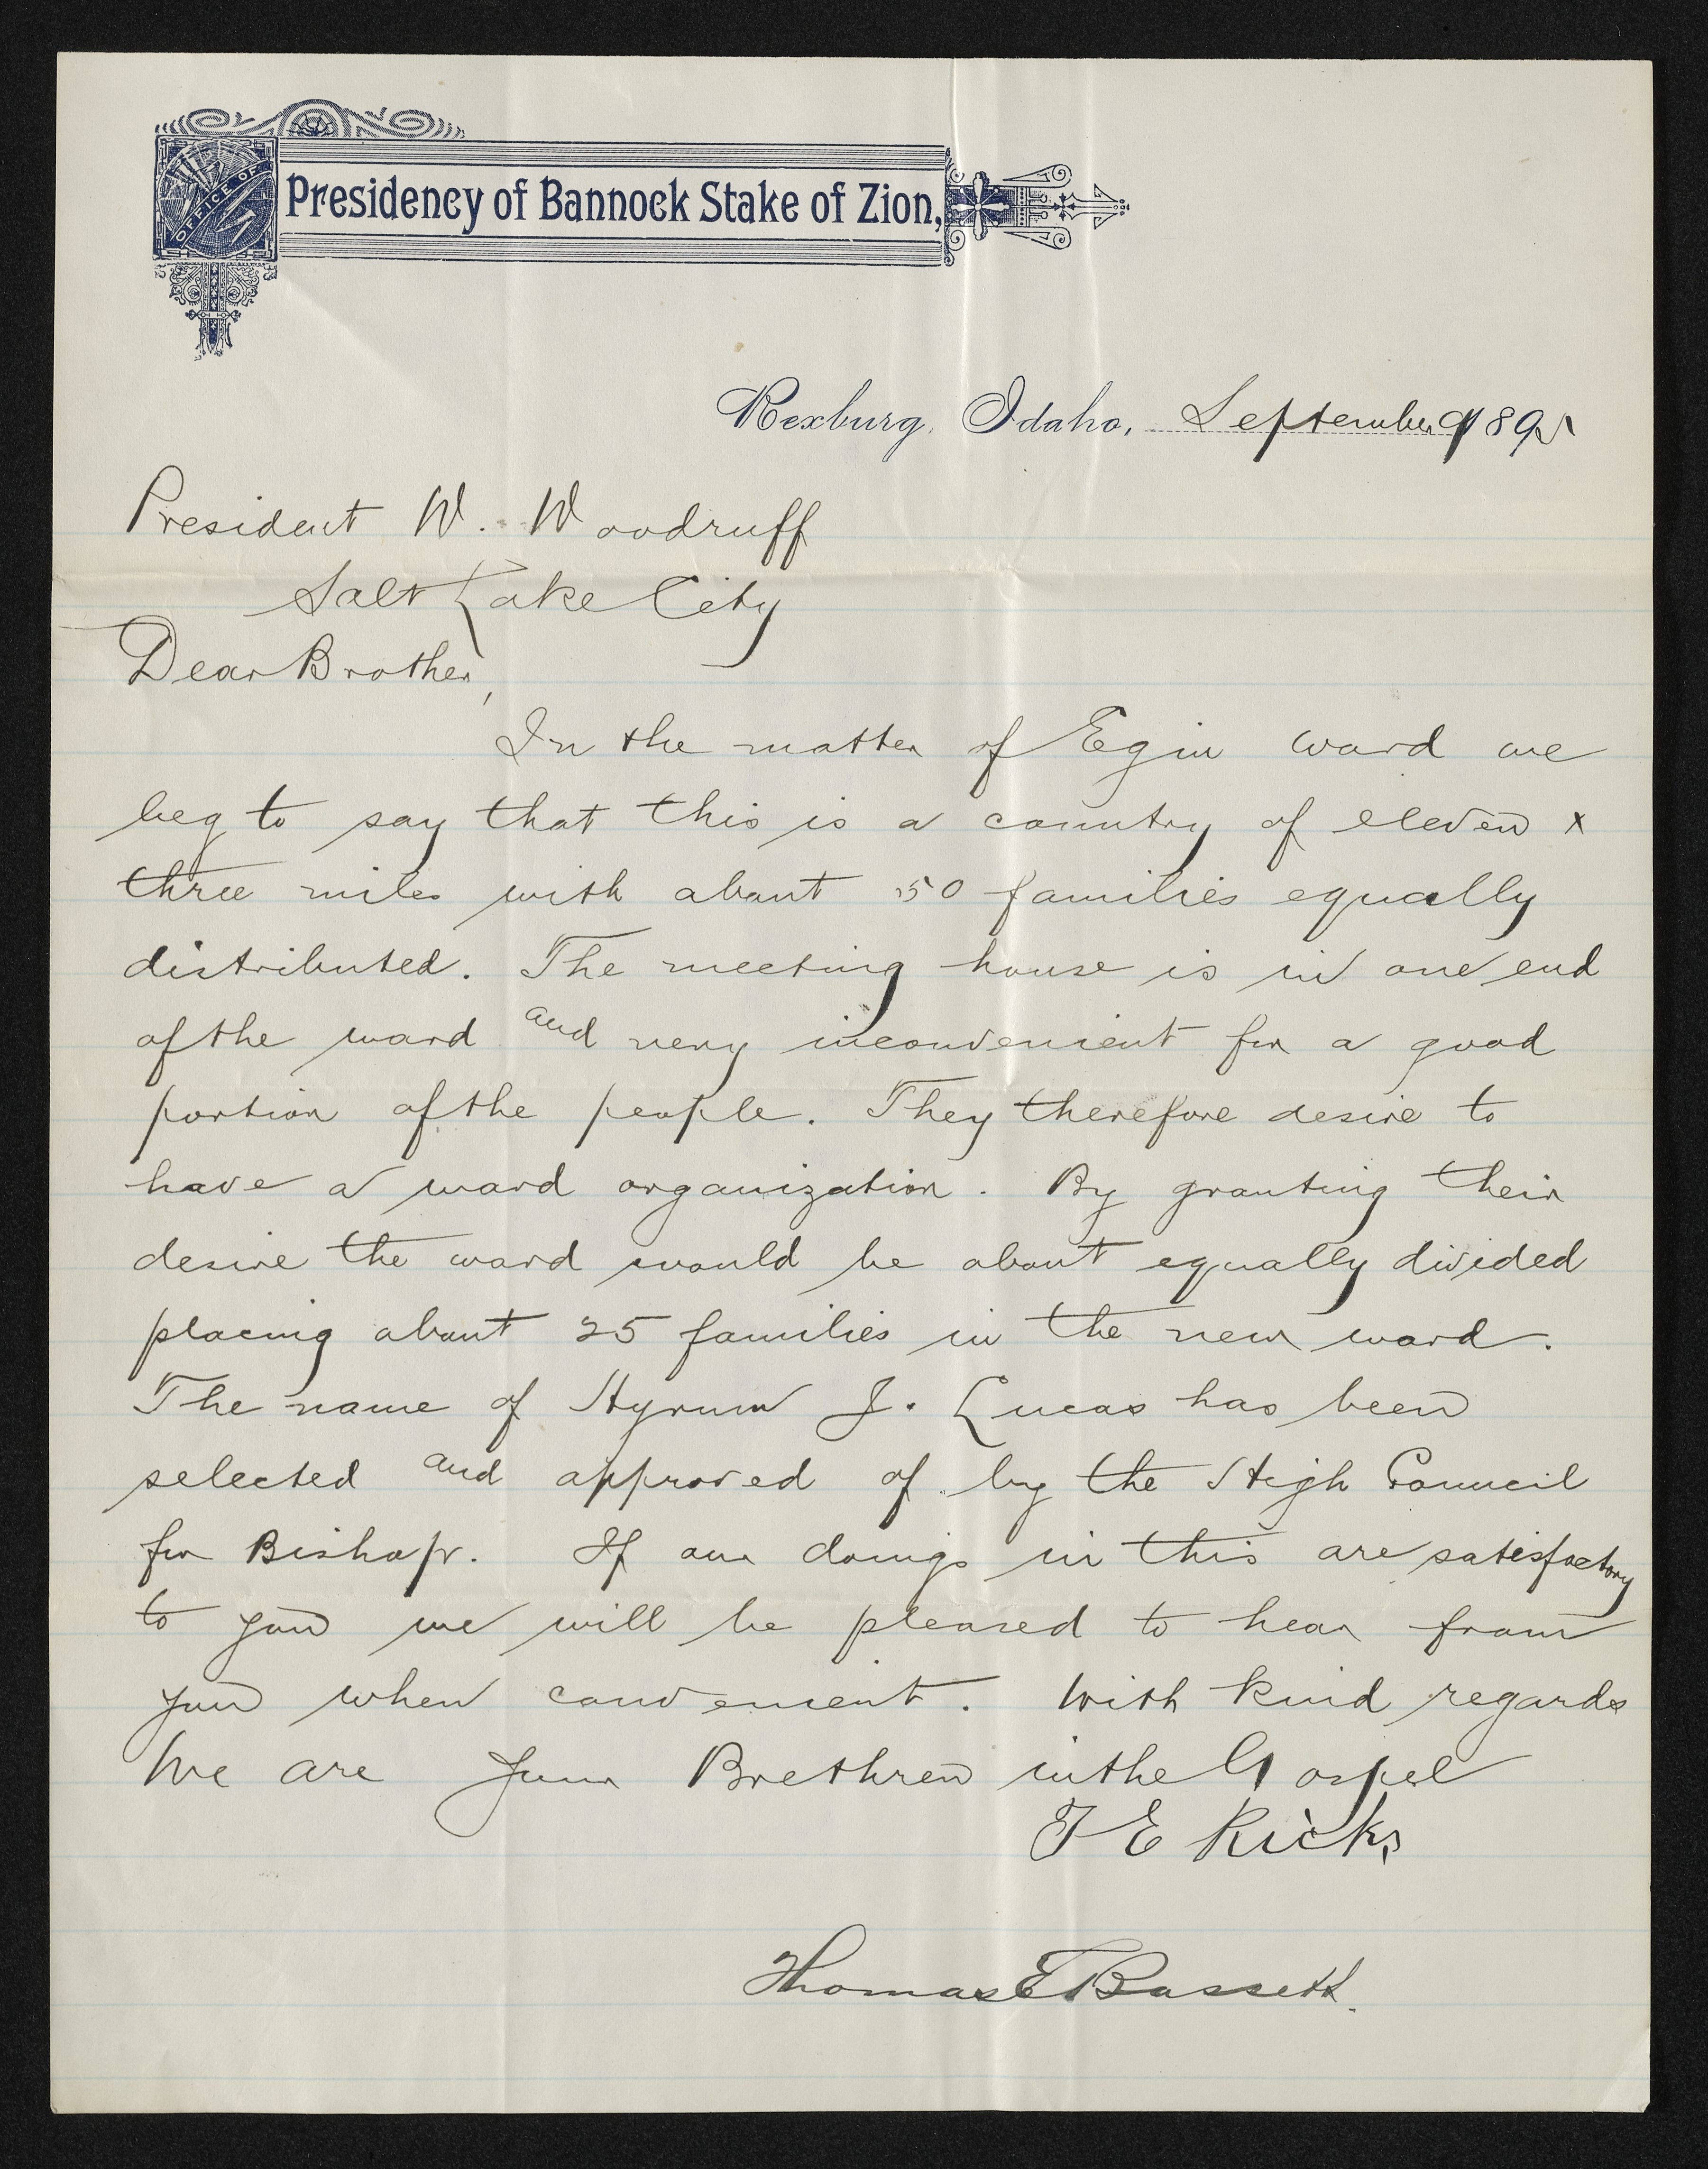 OFFICE OF
Presidency of Bannock Stake of Zion,
Rexburg, Idaho, September 9 1895
President W. Woodruff
Salt Lake City
Dear Brother,
In the matter of Egin ward we
beg to say that this is a country of eleven x
three miles with about 50 families equally
distributed. The meeting house is in one end
of the ward and very inconvenient for a good
portion of the people. They therefore desire to
have a ward organization. By granting their
desire the ward would be about equally divided
placing about 25 families in the new ward.
The name of Hyrum J. Lucas has been
selected and approved of by the High Council
for Bishop. If our doings in this are satisfactory
to you we will be pleased to hear from
you when convenient. With kind regards
We are Your Brethren in the Gospel
T E Ricks
Thomas E Bassett.